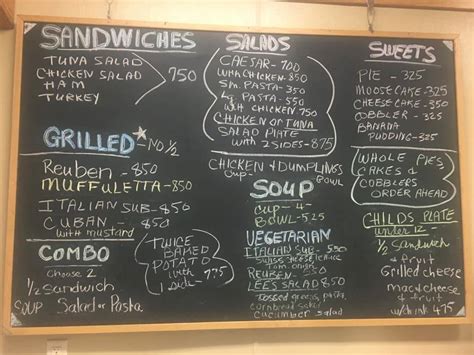 SANDWICHES
TUNA SALAD
CHICKEN SALAD
HAM
TURKEY
750
GRILLED - NO 1/2
Reuben - 850
MUFFULETTA - 850
ITALIAN SUB - 850
CUBAN - 850
with mustard
COMBO
Choose 2
1/2 Sandwich
SOUP Salad or Pasta
TWICE
BAKED
POTATO
with
1 side
775
SALADS
CAESAR - 700
with CHICKEN - 850
Sm. PASTA - 350
Lg. PASTA - 550
CHICKEN or TUNA
SALAD PLATE
with 2 SIDES - 875
CHICKEN & DUMPLINGS
cup - Bowl
SOUP
cup - 4 -
BOWL - 525
VEGETARIAN
ITALIAN SUB - 550
Swiss, cheese, lettuce
Tom. onion
REUBEN - 850
LEES SALAD 850
tossed greens, pasta
cornbread salad
cucumber salad
SWEETS
PIE - 325
MOOSE CAKE - 350
CHEESE CAKE - 350
COBBLER - 325
BANANA
PUDDING - 325
WHOLE PIES,
CAKES &
COBBLERS
ORDER AHEAD
CHILDS PLATE
under 12
1/2 sandwich
& fruit
Grilled cheese
mac & cheese
& fruit
w/drink 475